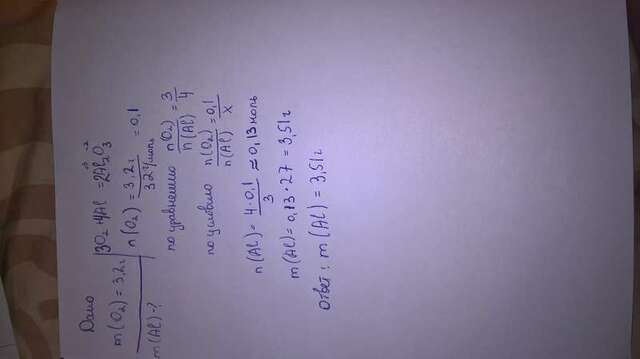 Дано
m(O₂) = 3,2г
m(Al)-?
3O₂+4Al = 2Al₂⁺³O₃⁻²
n(O₂) = 3,2г / 32г/моль = 0,1
по уравнению n(O₂)/n(Al) = 3/4
по условию n(O₂)/n(Al) = 0,1/x
n(Al) = 4·0,1/3 ≈ 0,13 моль
m(Al) = 0,13·27 = 3,51г
Ответ: m(Al) = 3,51г